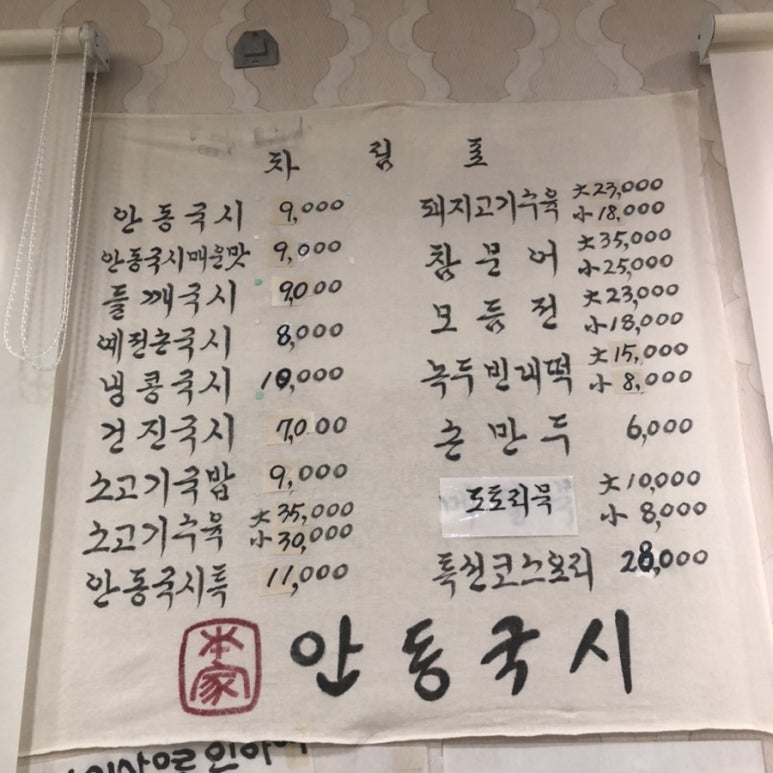 차림표
안동국시 9,000
안동국시매운맛 9,000
들깨국시 9,000
예전손국시 8,000
냉콩국시 10,000
건진국시 7,000
소고기국밥 9,000
소고기수육 大 35,000
小 30,000
안동국시특 11,000
돼지고기수육 大 23,000
小 18,000
참문어 大 35,000
小 25,000
모듬전 大 23,000
小 18,000
녹두빈대떡 大 15,000
小 8,000
손만두 6,000
도토리묵 大 10,000
小 8,000
특선코스요리 28,000
本家 안동국시